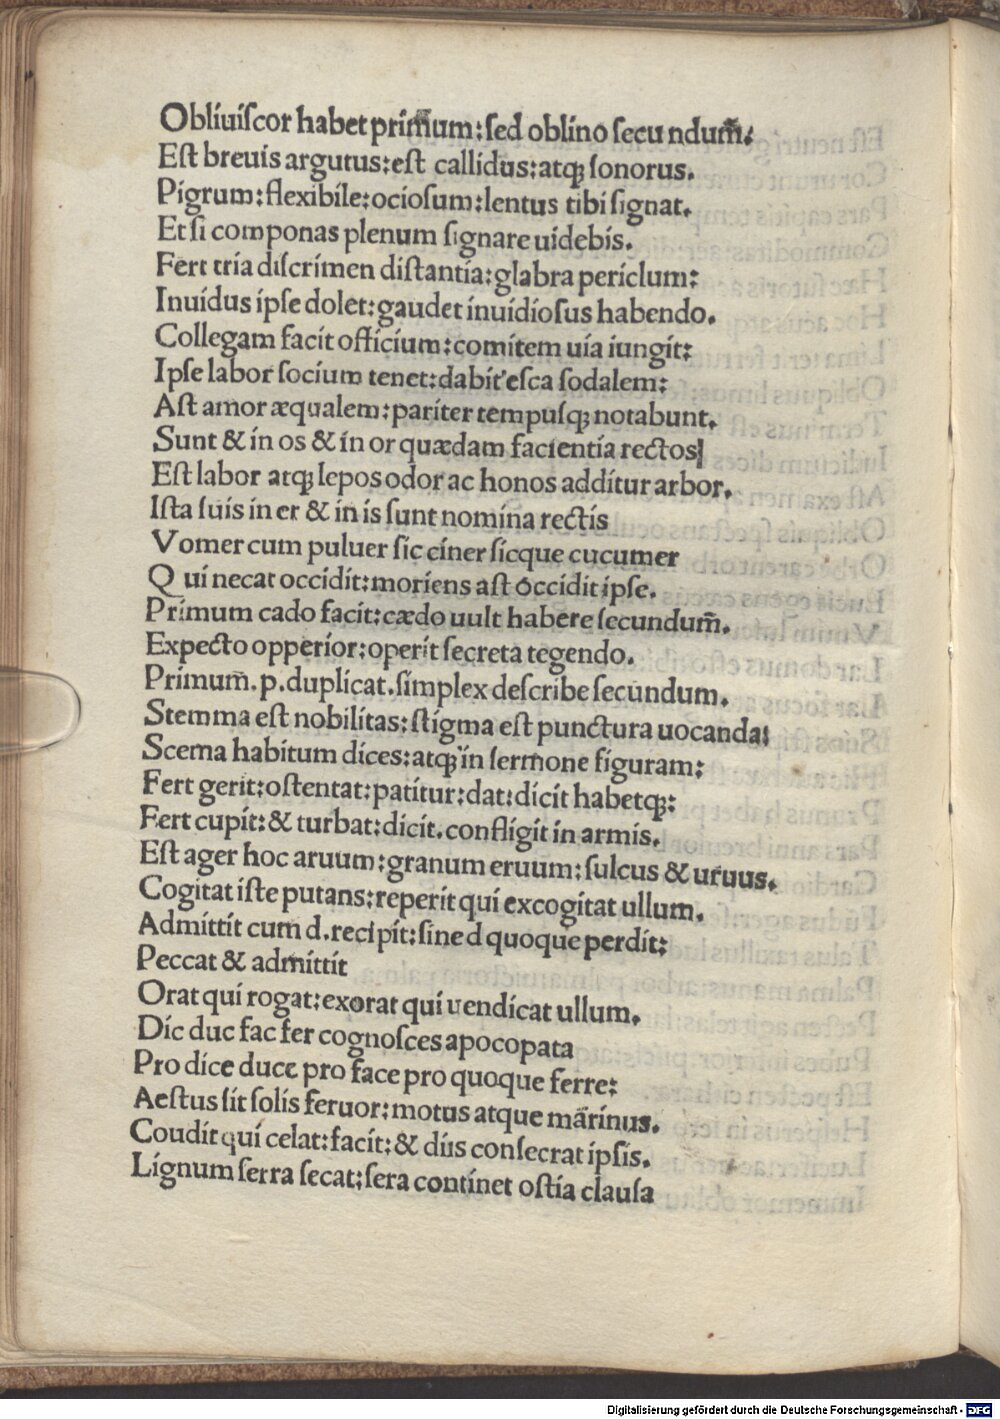 Obliuiſcor habet primum:ſed oblino ſecu ndum̄.
Eſt breuis argutus:eſt callidus:atqꝫ ſonorus.
Pigrum:flexibile:ocioſum:lentus tibi ſignat.
Et ſi componas plenum ſignare uidebis.
Fert tria diſcrimen diſtantia:glabra periclum:
Inuidus ipſe dolet:gaudet inuidioſus habendo.
Collegam facit officium:comitem uia iungit:
Ipſe labor ſocium tenet:dabit eſca ſodalem:
Aſt amor æqualem:pariter tempuſqꝫ notabunt.
Sunt & in os & in or quædam facientia rectos
Eſt labor atqꝫ lepos odor ac honos additur arbor.
Iſta ſuis in er & in is ſunt nomina rectis
Vomer cum puluer ſic ciner ſicque cucumer
Q ui necat occidit:moriens aſt occidit ipſe.
Primum cado facit:cædo uult habere ſecundum̄.
Expecto opperior:operit ſecreta tegendo.
Primum̄.p.duplicat.ſimplex deſcribe ſecundum.
Stemma eſt nobilitas:ſtigma eſt punctura uocanda:
Scema habitum dices:atqꝫ in ſermone figuram:
Fert gerit:oſtentat:patitur:dat:dicit habetqꝫ:
Fert cupit:& turbat:dicit.confligit in armis.
Eſt ager hoc aruum:granum eruum:ſulcus & uruus.
Cogitat iſte putans:reperit qui excogitat ullum.
Admittit cum d.recipit:ſine d quoque perdit:
Peccat & admittit
Orat qui rogat:exorat qui uendicat ullum.
Dic duc fac fer cognoſces apocopata
Pro dice duce pro face pro quoque ferre:
Aeſtus ſit ſolis feruor:motus atque marinus.
Coudit qui celat:facit:& diis conſecrat ipſis.
Lignum ſerra ſecat:ſera continet oſtia clauſa
Digitalisierung gefördert durch die Deutsche Forschungsgemeinschaft - DFG